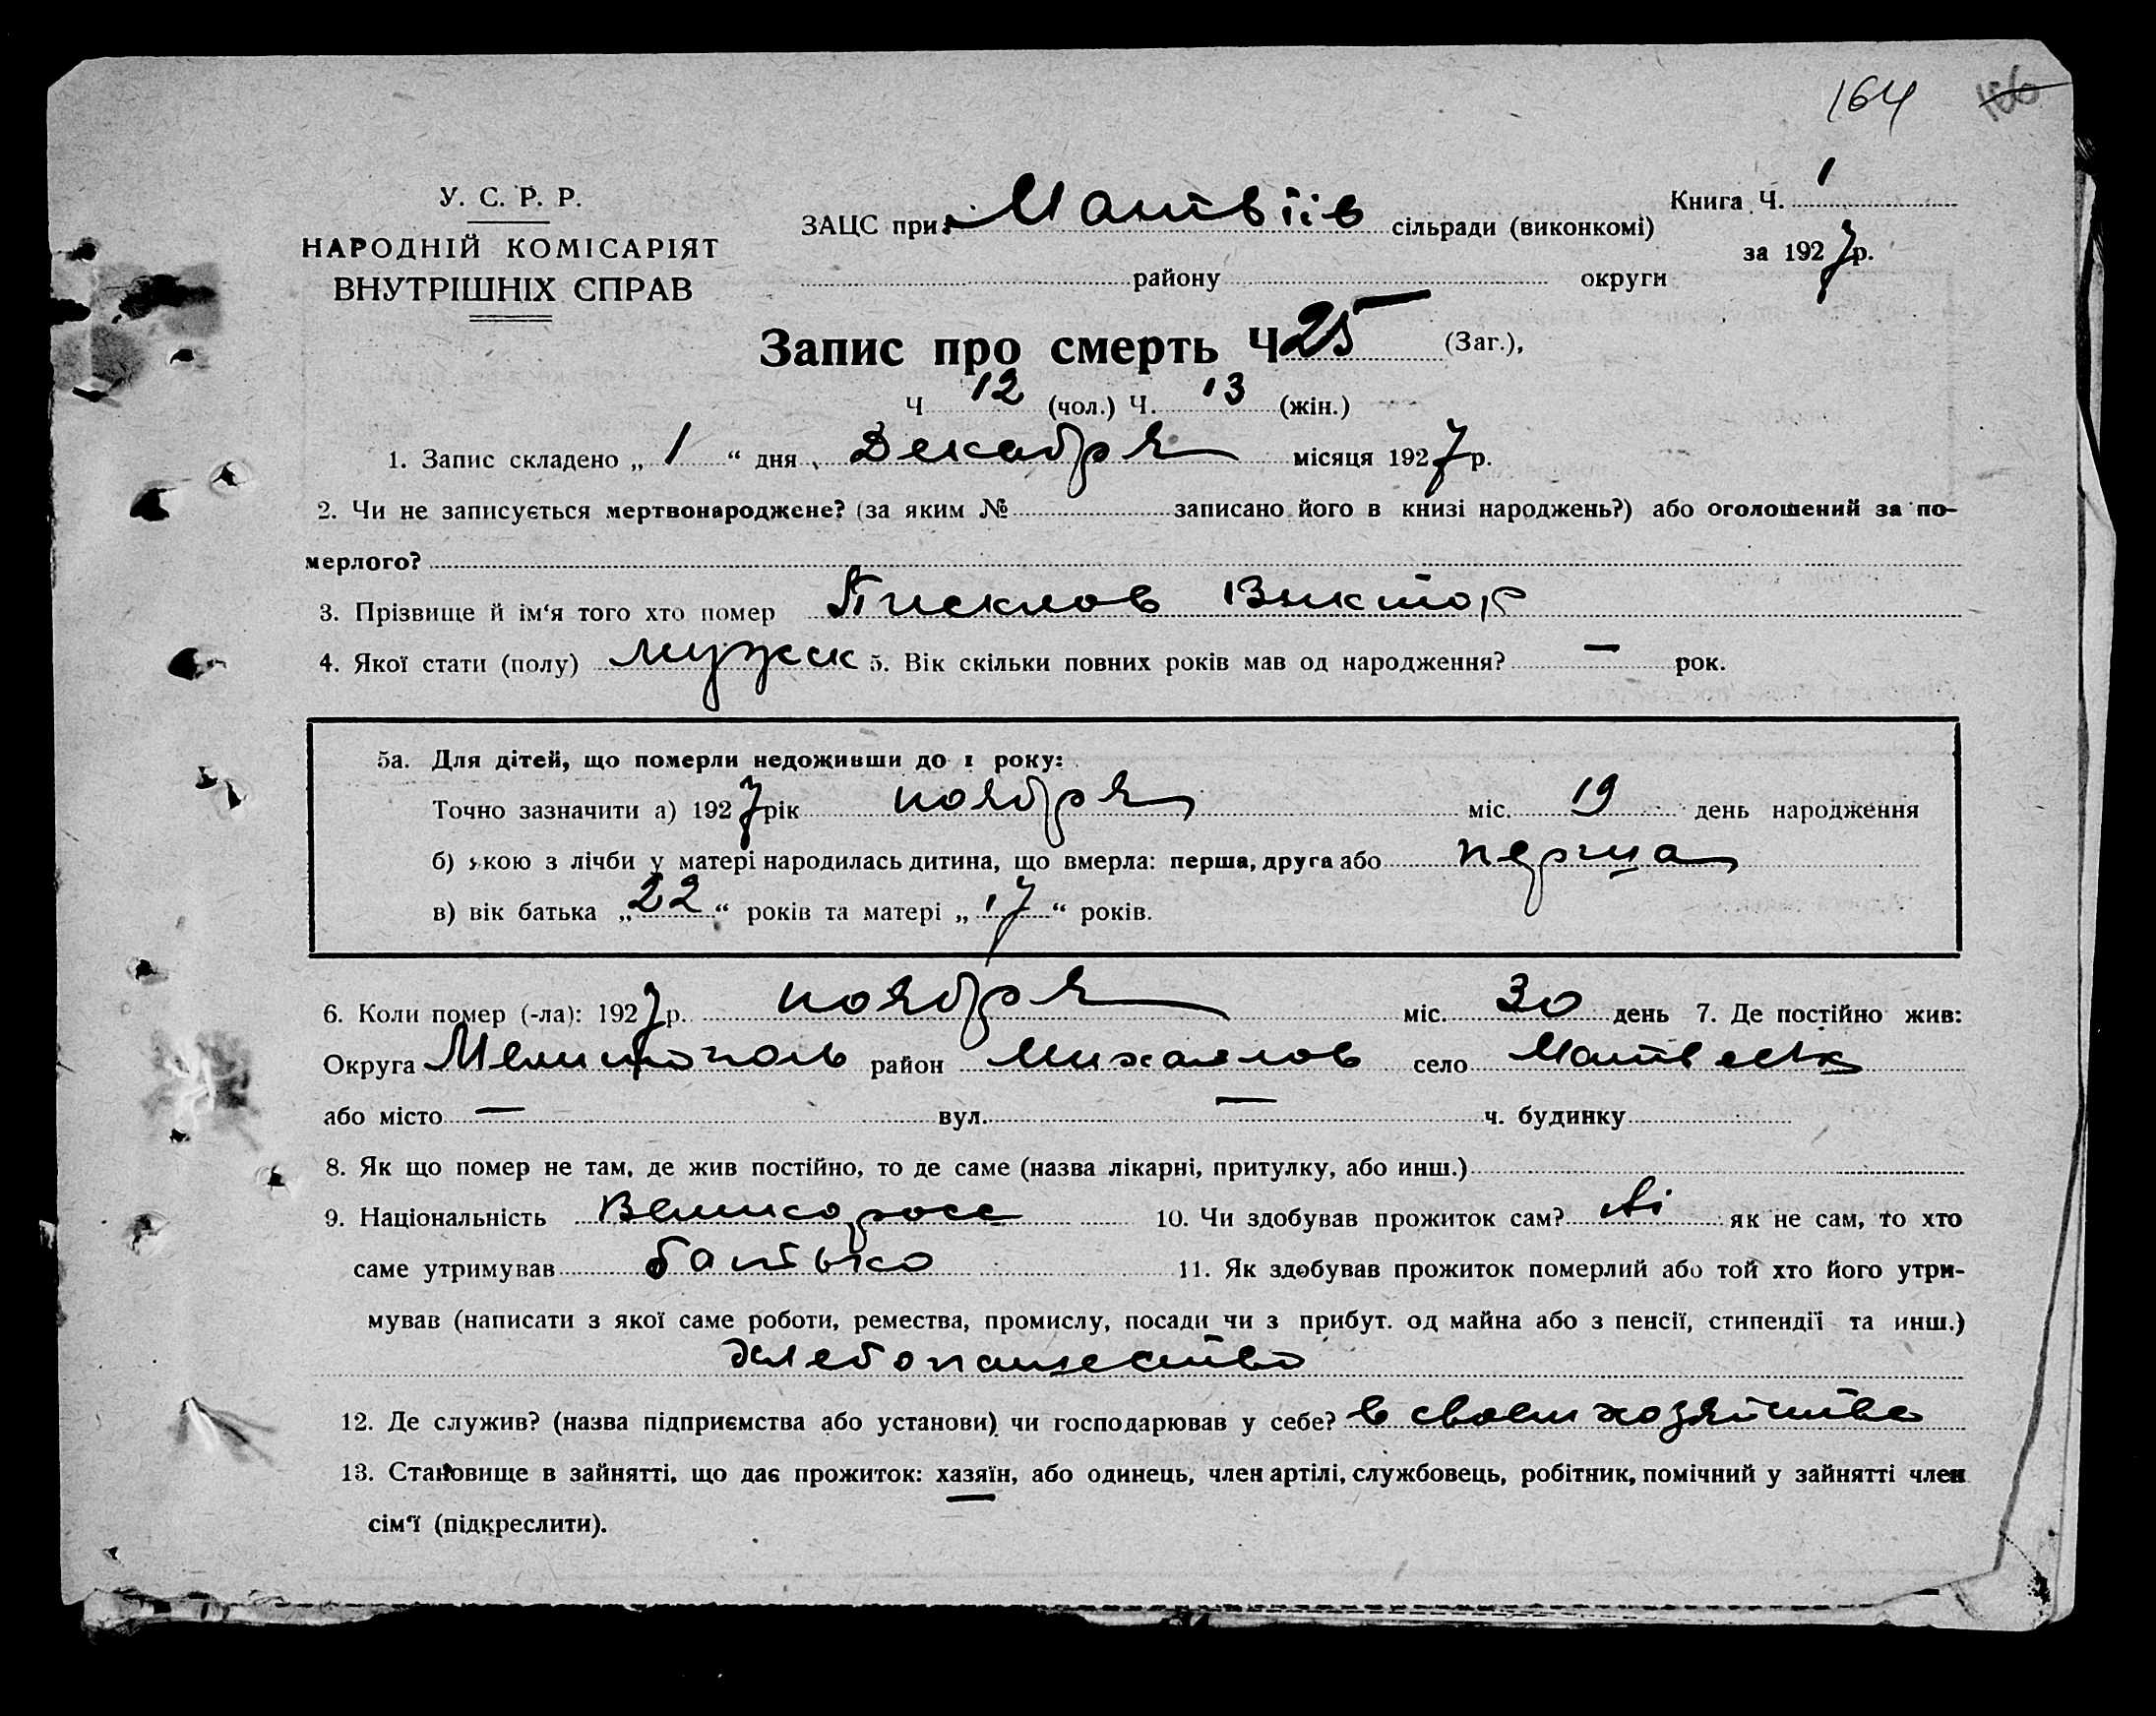 164 166
У. С. Р. Р.
НАРОДНІЙ КОМІСАРІЯТ
ВНУТРІШНІХ СПРАВ
ЗАЦС при Матвіїв сільради (виконкомі)
району округи
Книга Ч. 1
за 1927 р.
Запис про смерть Ч 25 (Заг.),
Ч 12 (чол.) Ч. 13 (жін.)
1. Запис складено „ 1 “ дня Декабря місяця 1927 р.
2. Чи не записується мертвонароджене? (за яким № записано його в книзі народжень?) або оголошений за по-
мерлого?
3. Прізвище й ім‘я того хто помер Писклов Виктор
4. Якої стати (полу) мужск 5. Вік скільки повних років мав од народження? — рок.
5а. Для дітей, що померли недоживши до 1 року:
Точно зазначити а) 1927 рік ноября міс. 19 день народження
б) якою з лічби у матері народилась дитина, що вмерла: перша, друга або перша
в) вік батька „ 22 “ років та матері „ 17 “ років.
6. Коли помер (-ла): 1927 р. ноября міс. 30 день 7. Де постійно жив:
Округа Мелитополь район Михайлов село
або місто — вул. — ч. будинку
8. Як що помер не там, де жив постійно, то де саме (назва лікарні, притулку, або инш.)
9. Національність Великоросс 10. Чи здобував прожиток сам? Ні як не сам, то хто
саме утримував батько 11. Як здобував прожиток померлий або той хто його утри-
мував (написати з якої саме роботи, ремества, промислу, посади чи з прибут. од майна або з пенсії, стипендії та инш.)
хлебопашество
12. Де служив? (назва підприємства або установи) чи господарював у себе? в своем хозяйстве
13. Становище в зайнятті, що дає прожиток: хазяїн, або одинець, член артілі, службовець, робітник, помічний у зайнятті член
сім‘ї (підкреслити).